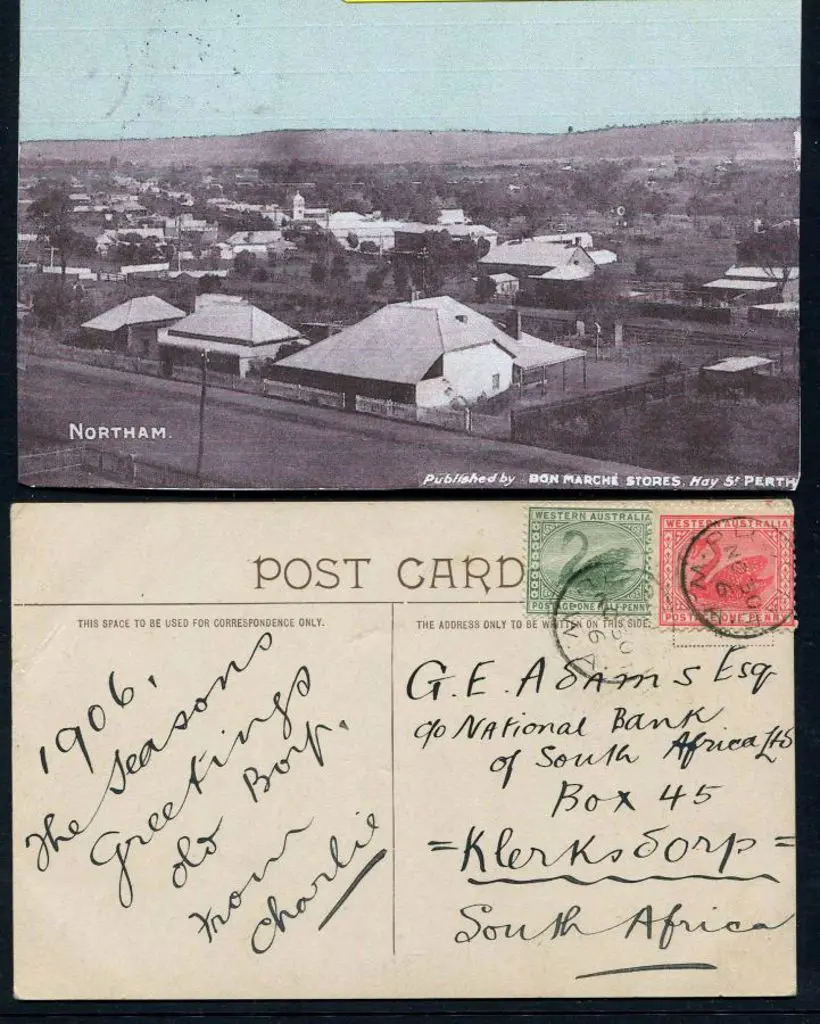 NORTHAM.
Published by BON MARCHÉ STORES, Hay St PERTH
POST CARD
WESTERN AUSTRALIA
POSTAGE·ONE HALF·PENNY
WESTERN AUSTRALIA
POSTAGE ONE PENNY
THIS SPACE TO BE USED FOR CORRESPONDENCE ONLY.
THE ADDRESS ONLY TO BE WRITTEN ON THIS SIDE.
1906.
The Seasons
Greetings
old
from
Charlie
G. E. Adams Esq
c/o National Bank
of South Africa Ltd
Box 45
=Klerksdorp=
South Africa